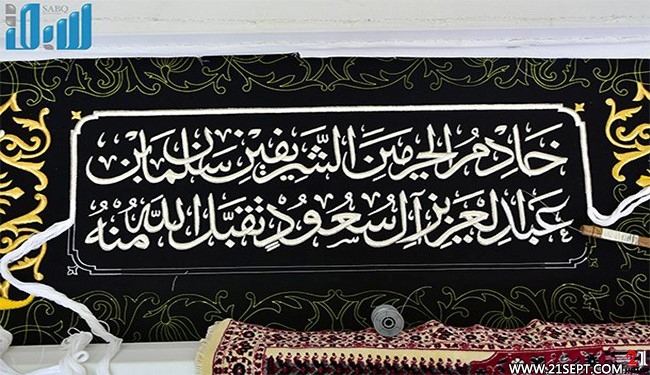 سبق
SABQ
خَادِمُ الحَرَمَيْن الشَّرِيفَيْن سَلمَان بْن
عَبْدِ العَزِيزِ آل سُعُودٍ تَقَبَّلَ اللَّهُ مِنْهُ
WWW.21SEPT.COM